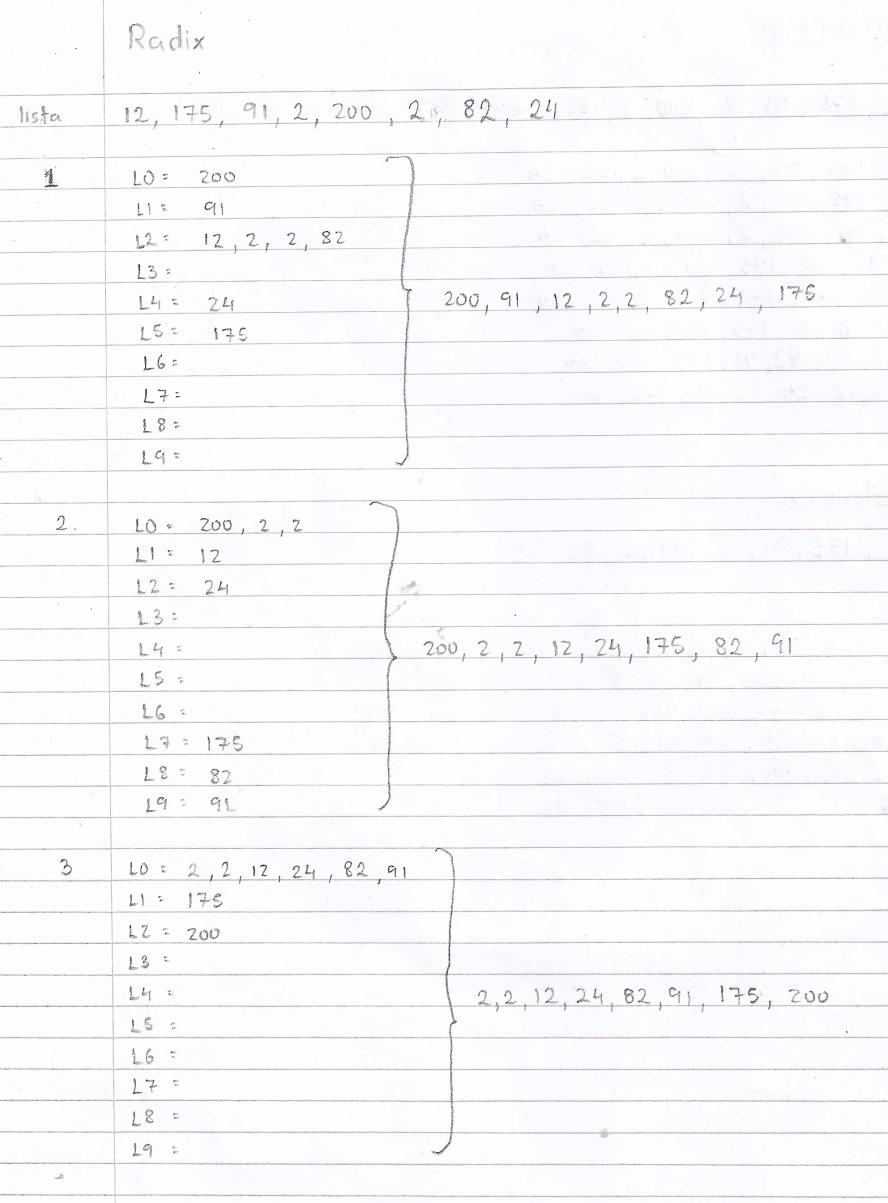 Radix
lista 12, 175, 91, 2, 200, 2, 82, 24
1 L0= 200
L1= 91
L2= 12, 2, 2, 82
L3=
L4= 24
L5= 175
L6=
L7=
L8=
L9=
200, 91, 12, 2, 2, 82, 24, 175
2. L0= 200, 2, 2
L1= 12
L2= 24
L3=
L4=
L5=
L6=
L7= 175
L8= 82
L9= 91
200, 2, 2, 12, 24, 175, 82, 91
3 L0= 2, 2, 12, 24, 82, 91
L1= 175
L2= 200
L3=
L4=
L5=
L6=
L7=
L8=
L9=
2, 2, 12, 24, 82, 91, 175, 200